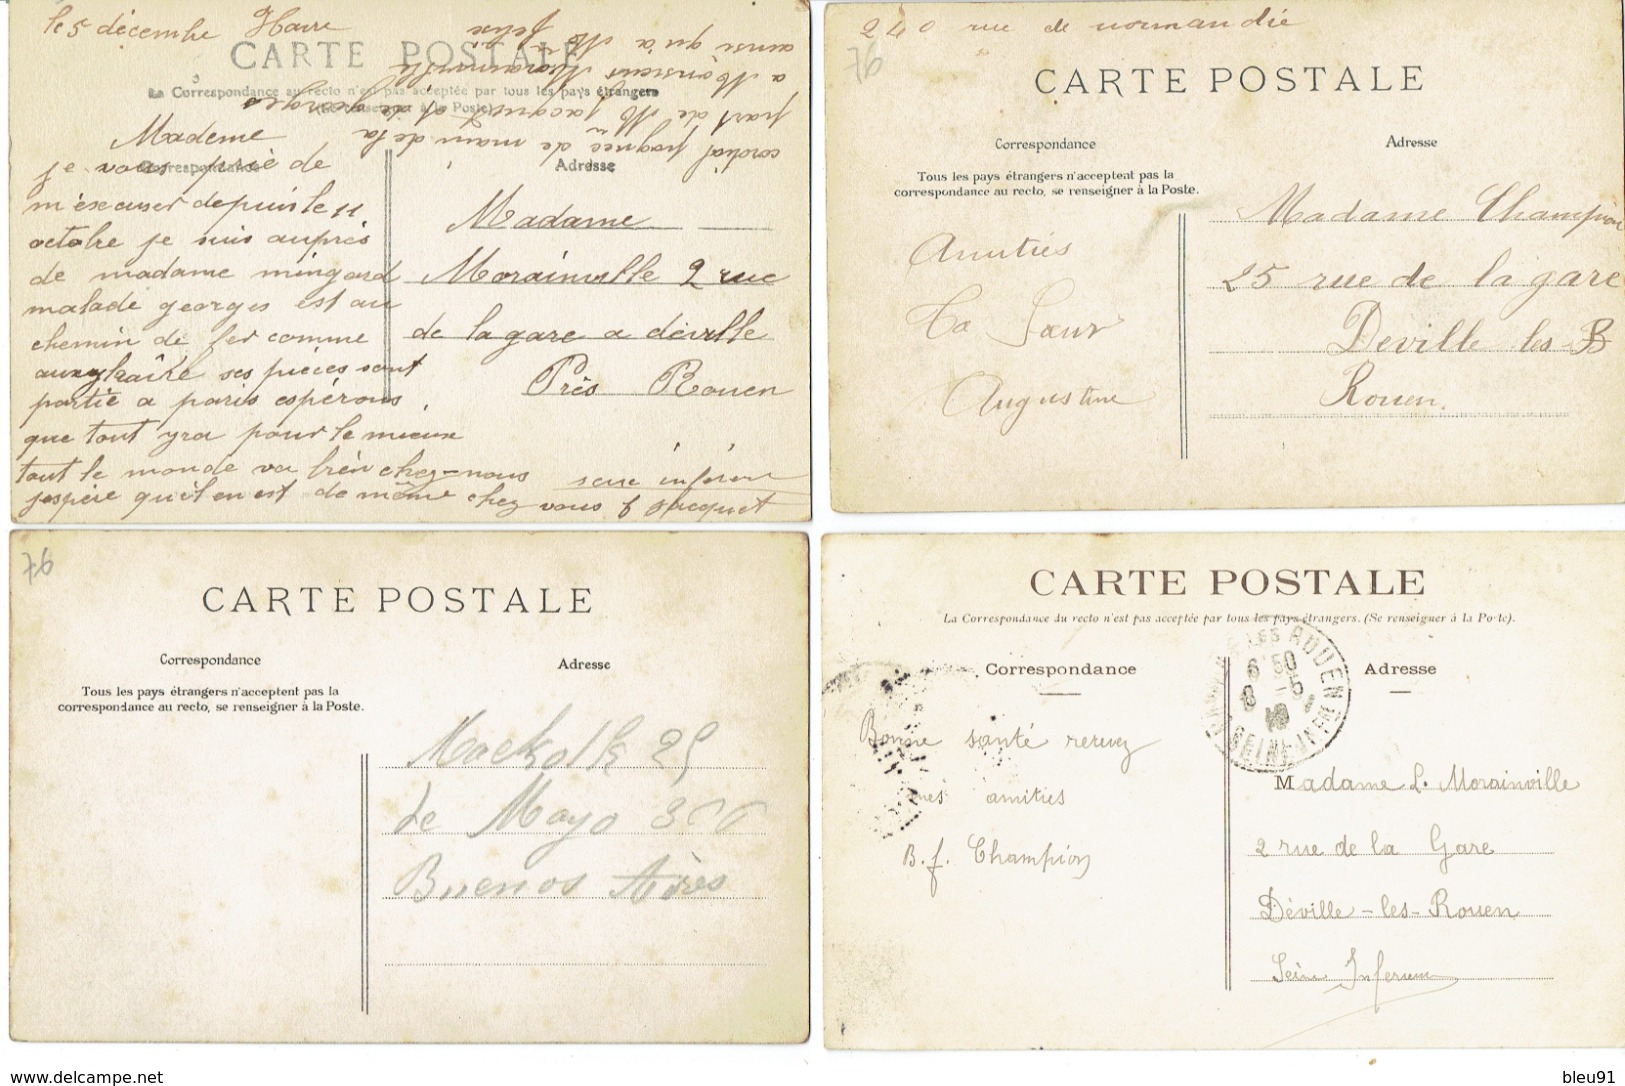 le 5 décembre Havre
CARTE POSTALE
La Correspondance au recto n'est pas acceptée par tous les pays étrangers
(Se renseigner à la Poste)
cordial pognée de main de la
part de M Jacquet et de georges
a Monsieur Morainville
ainsi qu'a M
felix
Correspondance
Adresse
Mademe
je vous prié de
m'éxcuser depuis le 11
octobre je suis auprés
de madame mingard
malade georges est au
chemin de fer comme
auxyliaire ses pièces sont
partie a paris espérons
que tout yra pour le mieux
tout le monde va bien chez-nous
j'espère qu'il en est de même chez vous
Jacquet
Madame
Morainville 2 rue
de la gare a déville
Près Rouen
240 rue de normandie
76
CARTE POSTALE
Correspondance
Adresse
Tous les pays étrangers n'acceptent pas la
correspondance au recto, se renseigner à la Poste.
Amitiés
Ta Sœur
Augustine
Madame Champion
25 rue de la gare
Deville les-B
Rouen.
76
CARTE POSTALE
Correspondance
Adresse
Tous les pays étrangers n'acceptent pas la
correspondance au recto, se renseigner à la Poste.
25
de Mayo
Buenos Aires
CARTE POSTALE
La Correspondance du recto n'est pas acceptée par tous les pays étrangers. (Se renseigner à la Poste).
Correspondance
Adresse
les ROUEN
6 50
8 -5
SEINE-INFRE
Bonne santé recevez
mes amitiés
B. f. Champion
Madame L. Morainville
2 rue de la Gare
Déville-les-Rouen
Seine Inferieure
www.delcampe.net
bleu91